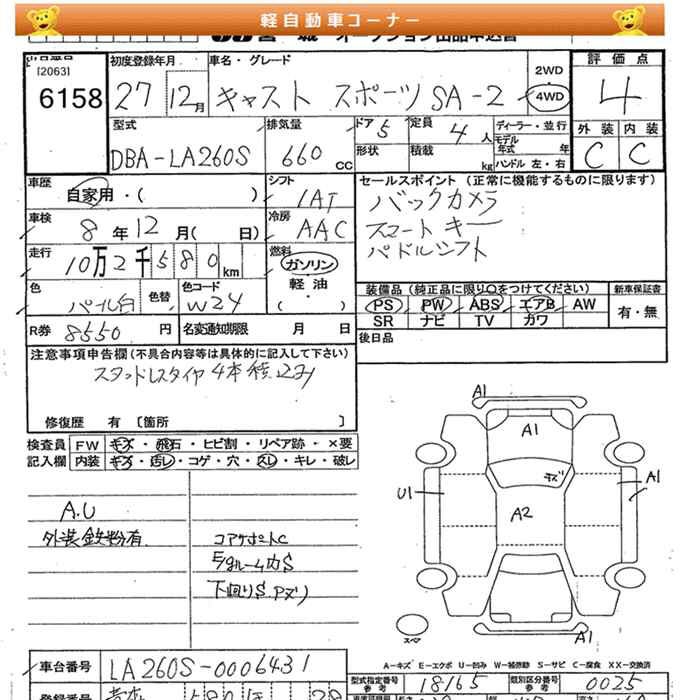 軽自動車コーナー
[2063]
6158
初度登録年月
27 12月
車名・グレード
キャスト スポーツ SA-2
2WD
4WD
評価点
4
外装 内装
C C
型式
DBA-LA260S
排気量
660 CC
ドア 5
定員 4 人
形状
積載 kg
ディーラー・並行
モデル年式 年
ハンドル 左・右
車歴
自家用・( )
シフト
IAT
セールスポイント (正常に機能するものに限ります)
バックカメラ
スマートキー
パドルシフト
車検
8年12月( 日)
冷房
AAC
走行
10万2千580km
燃料
ガソリン
軽油
( )
色
パール白
色替
色コード
W24
装備品(純正品に限り○をつけてください)
PS PW ABS エアB AW
SR ナビ TV カワ
新車保証書
有・無
R券 8550 円
名変通知期限 月 日
後日品
注意事項申告欄(不具合内容等は具体的に記入して下さい)
スタッドレスタイヤ4本積込み
修復歴 有 [箇所 ]
検査員記入欄
FW キズ・飛石・ヒビ割・リペア跡・×要
内装 キズ・汚レ・コゲ・穴・スレ・キレ・破レ
A.U
外装鉄粉有
コアサポートC
E/gルーム内S
下回りS Pズリ
A1
A1
キズ
U1
A2
A1
A1
スペア
A-キズ E-エクボ U-凹み W-補修跡 S-サビ C-腐食 XX-交換済
車台番号
LA260S-0006431
型式指定番号 参考
18165
類別区分番号 参考
0025
登録番号